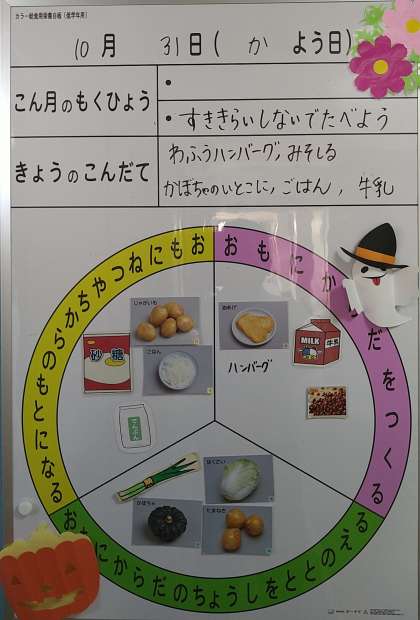 カラー給食用栄養白板(低学年用)
10月 31日( か よう日)
こん月のもくひょう
•
• すききらいしないでたべよう
きょうのこんだて
わふうハンバーグ, みそしる
かぼちゃのいとこに, ごはん, 牛乳
おもにねつやちからのもとになる
おもにからだをつくる
おもにからだのちょうしをととのえる
じゃがいも
砂糖
ごはん
でんぷん
油あげ
ハンバーグ
MILK 牛乳
はくさい
かぼちゃ
たまねぎ